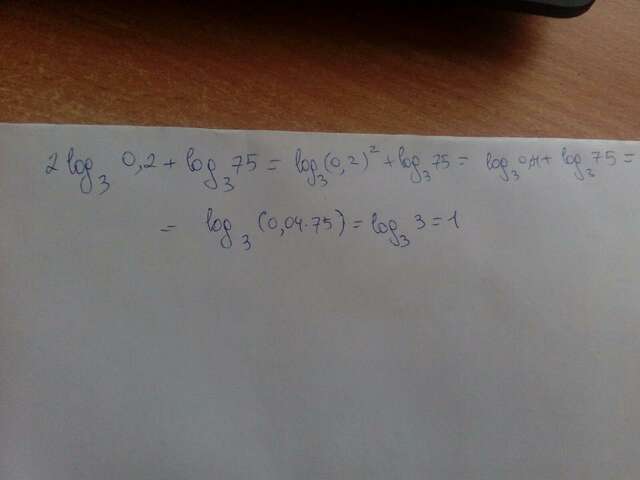 2 log₃ 0,2 + log₃ 75 = log₃(0,2)² + log₃ 75 = log₃ 0,4 + log₃ 75 =
= log₃ (0,04·75) = log₃ 3 = 1